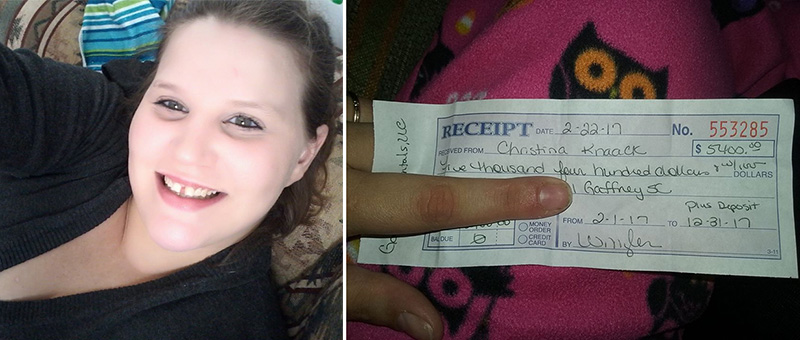 RECEIPT DATE 2-22-17 No. 553285
RECEIVED FROM Christina Knaack $5400.00
five thousand four hundred dollars DOLLARS
Gaffney
Plus Deposit
FROM 2-1-17 TO 12-31-17
MONEY ORDER
CREDIT CARD
BAL DUE 0
BY
3-11
LLC